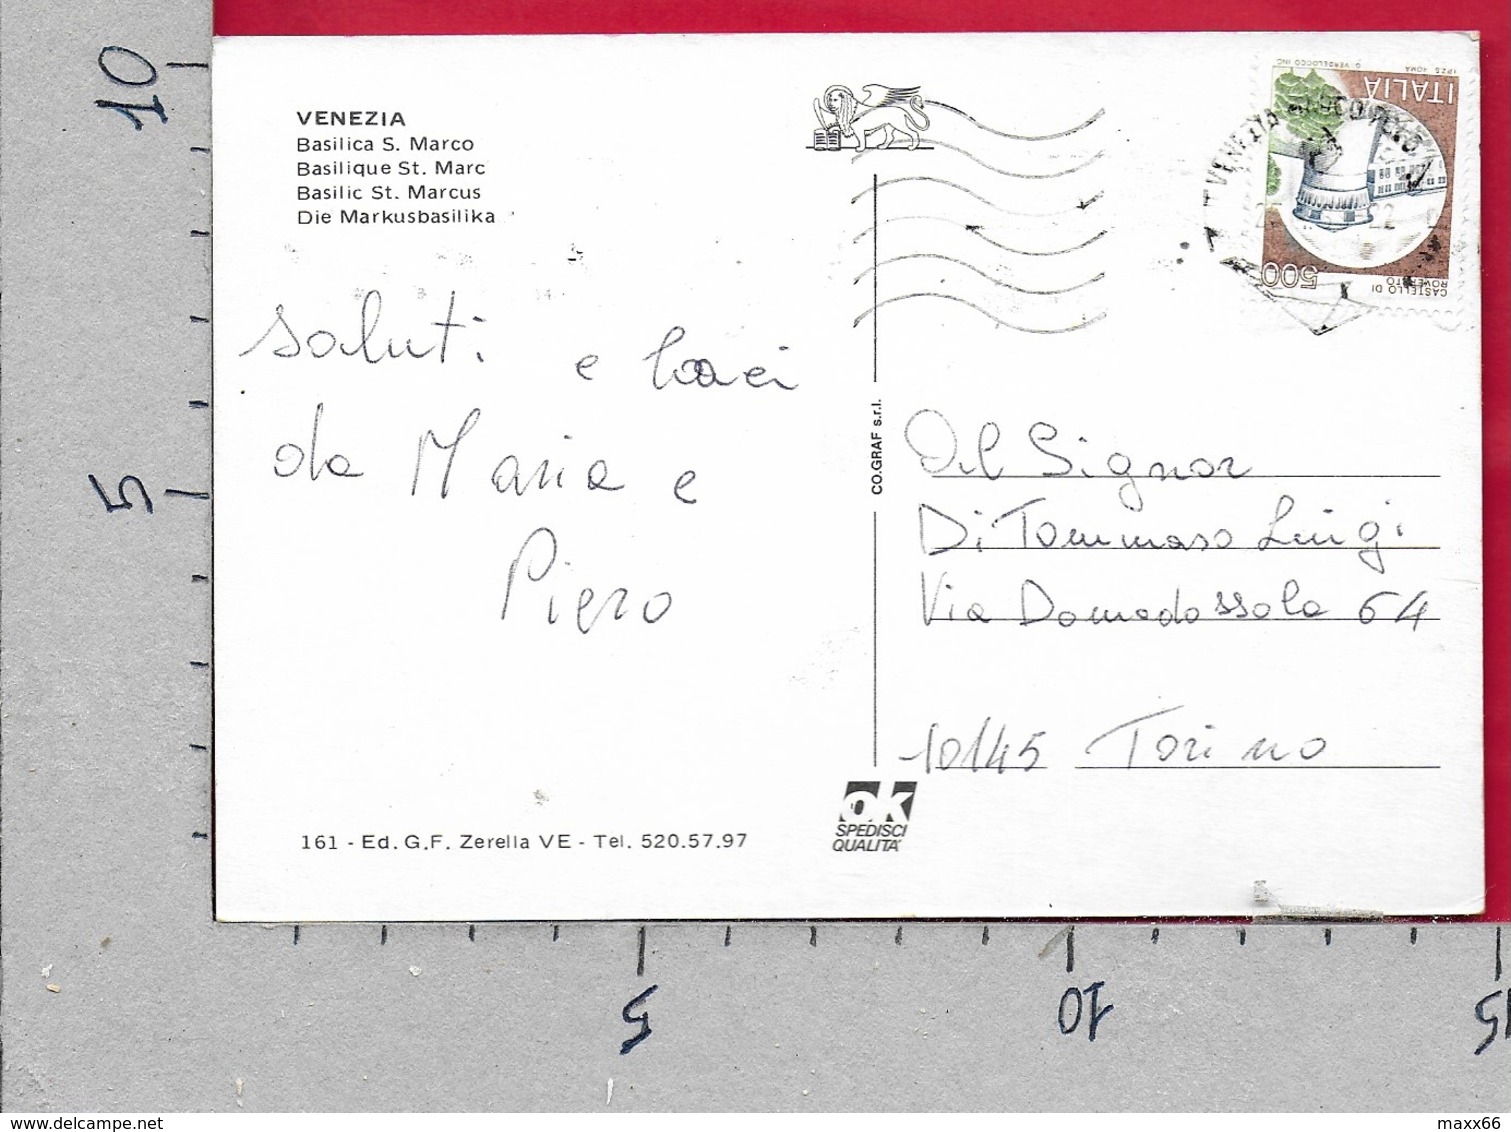 VENEZIA
Basilica S. Marco
Basilique St. Marc
Basilic St. Marcus
Die Markusbasilika
saluti e baci
da Maria e
Piero
161 - Ed. G.F. Zerella VE - Tel. 520.57.97
CO.GRAF s.r.l.
OK
SPEDISCI
QUALITA'
G. VERDELOCCO INC.
I.P.Z.S. ROMA
ITALIA
500
CASTELLO DI
ROVERETO
VENEZIA
22
Al Signor
Di Tommaso Luigi
Via Domodossola 64
10145 Torino
10
5
5
10
15
delcampe.net
maxx66